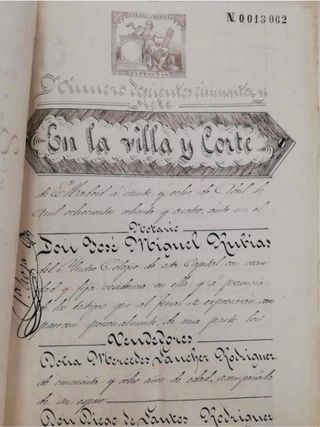 N.0013062
PESETAS
Número doscientos cincuenta y
siete
En la villa y Corte
de Madrid á veinte y ocho de Abril de
mil ochocientos ochenta y cuatro, ante mi el
Notario
Don José Miguel Rubias
del Ilustre Colegio de esta Capital con vecin
dad y fija residencia en ella, y á presencia
de los testigos que al final se expresarán, com
parecen personalmente, de una parte los
Vendedores
Doña Mercedes Sanchez Rodriguez
de cincuenta y ocho años de edad, acompañada
de su esposo
Don Diego de Santos Rodriguez